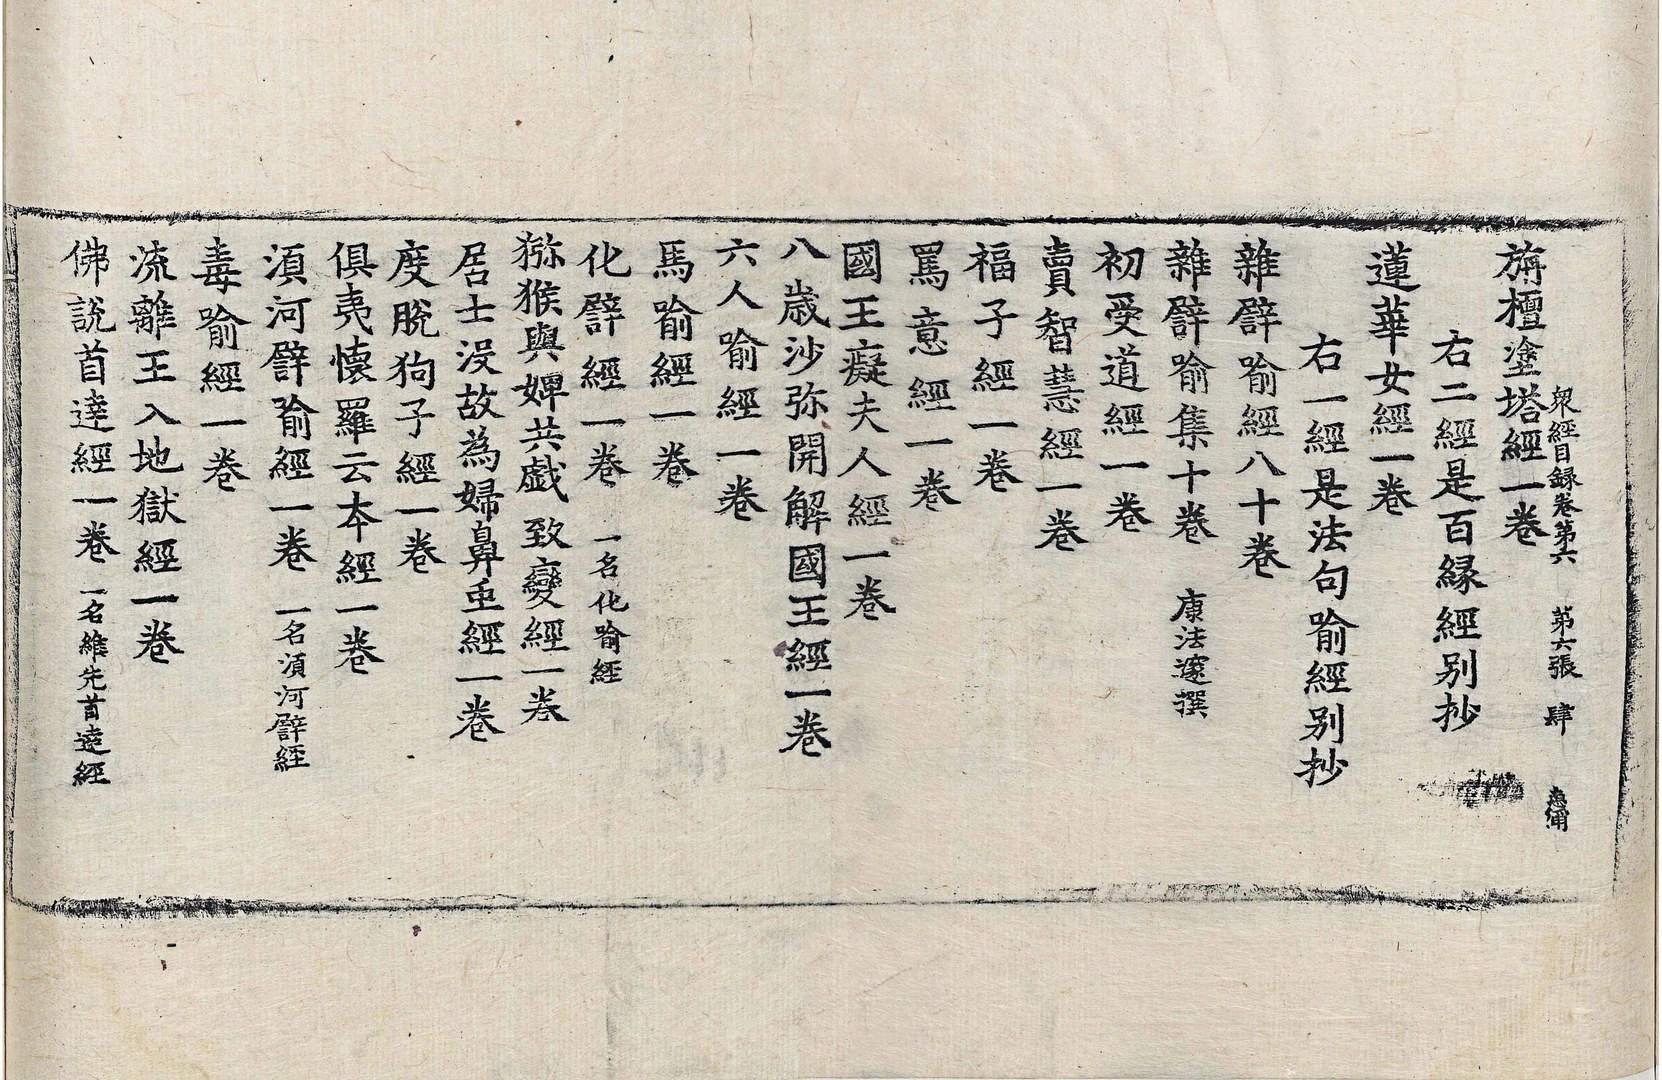 衆經目録卷第六　第六張　肆
旃檀塗塔經一卷
右二經是百縁經別抄
蓮華女經一卷
右一經是法句喻經別抄
雜譬喻經八十卷
雜譬喻集十卷　康法邃撰
初受道經一卷
賣智慧經一卷
福子經一卷
罵意經一卷
國王癡夫人經一卷
八歲沙弥開解國王經一卷
六人喻經一卷
馬喻經一卷
化譬經一卷　一名化喻經
猕猴與婢共戯致變經一卷
居士没故為婦鼻虫經一卷
度脫狗子經一卷
俱夷懐羅云夲經一卷
湏河譬喻經一卷　一名湏河譬經
毒喻經一卷
流離王入地獄經一卷
佛說首達經一卷　一名維先首達經